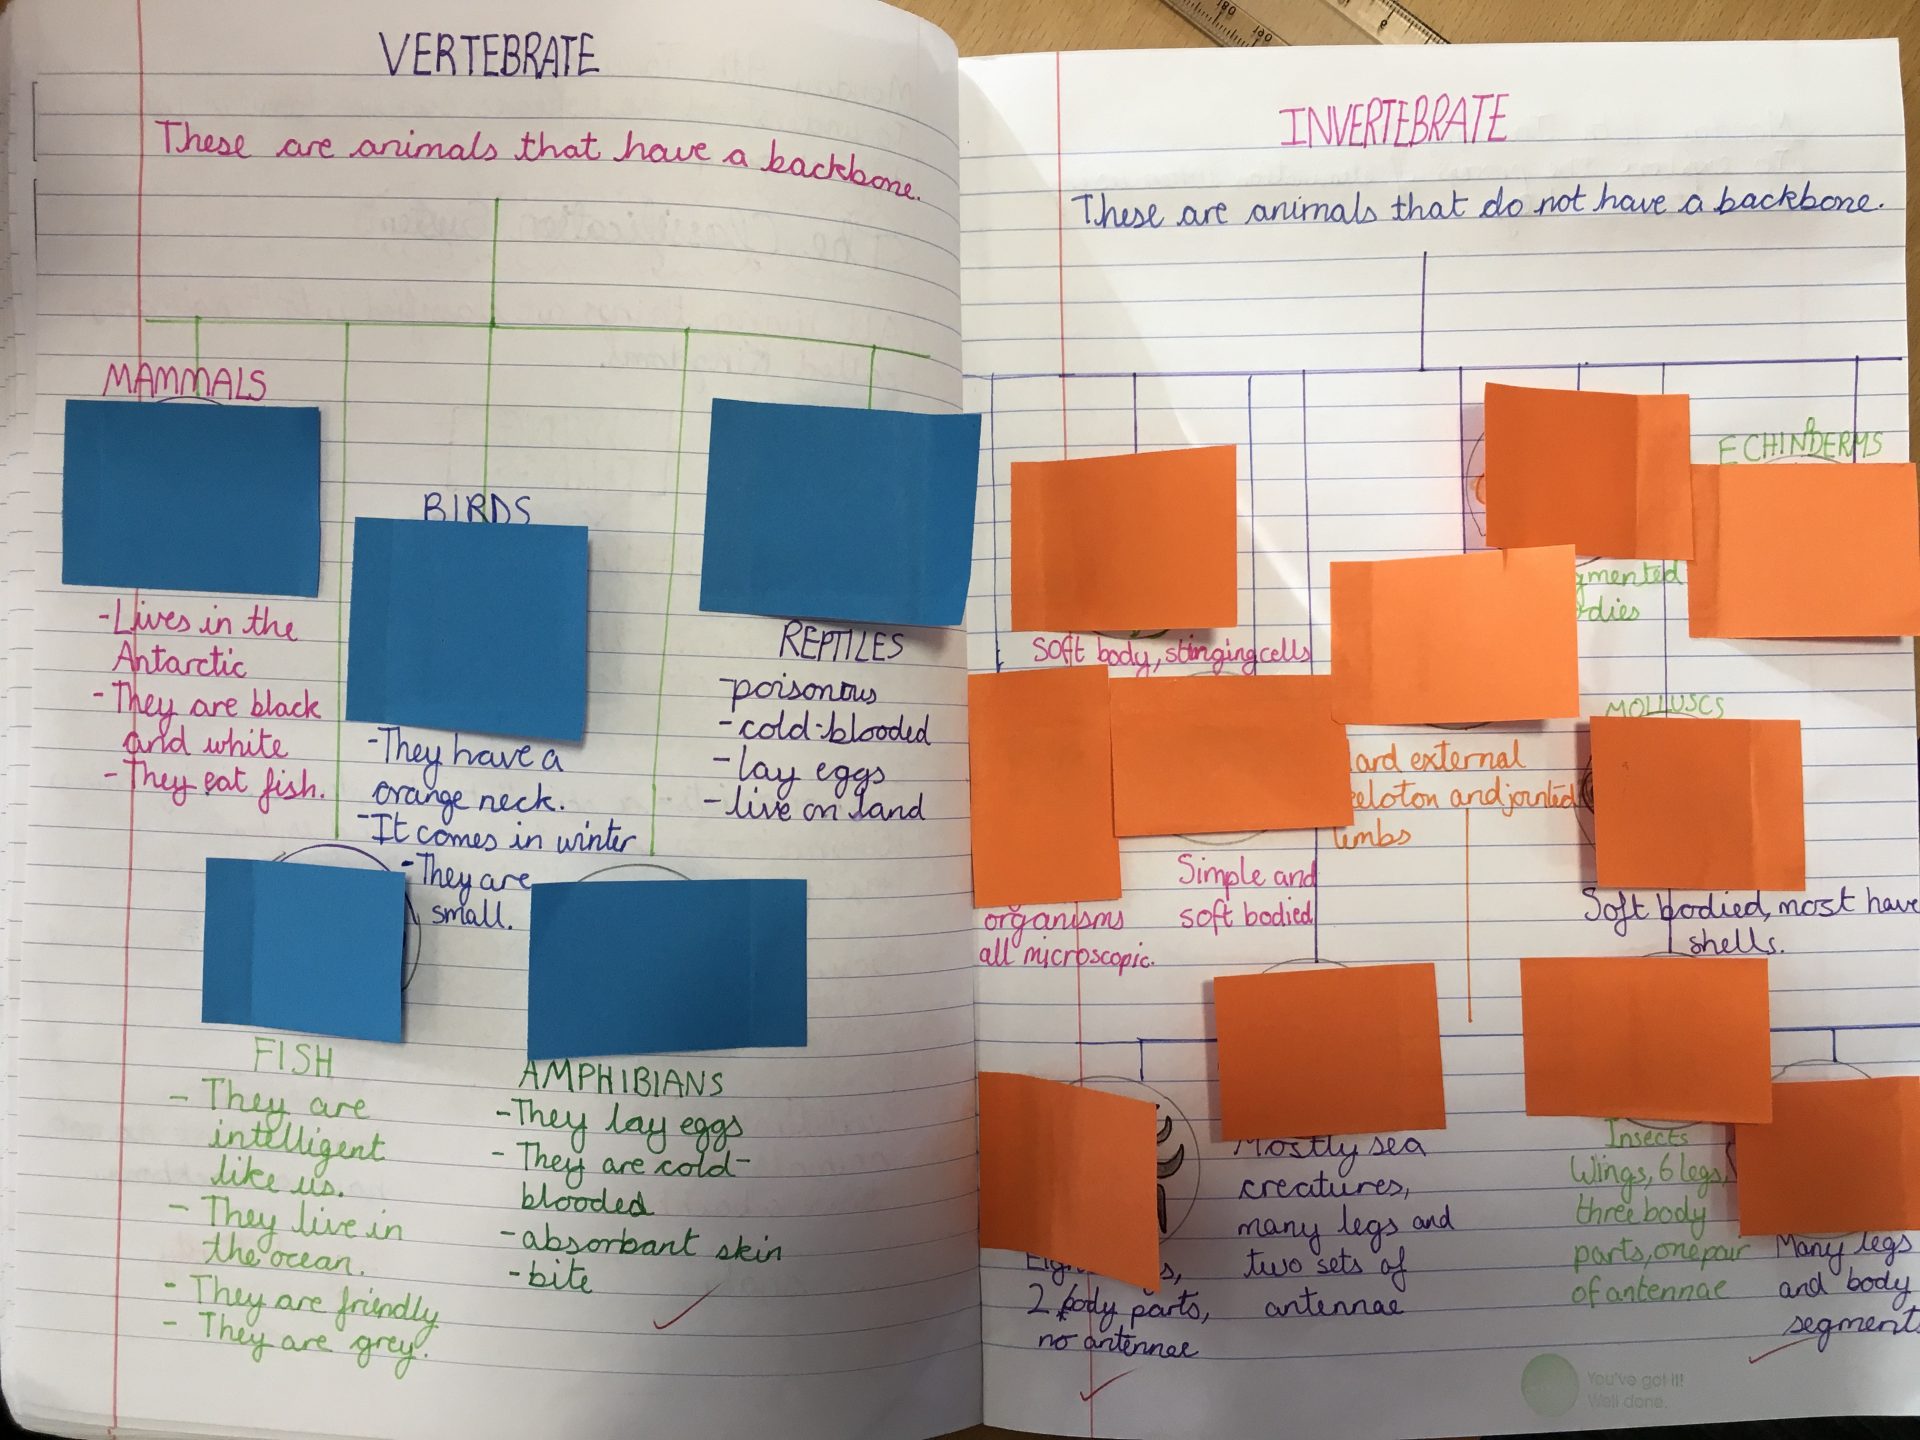 VERTEBRATE
These are animals that have a backbone.
MAMMALS
-Lives in the
Antarctic
-They are black
and white
-They eat fish.
BIRDS
-They have a
orange neck.
-It comes in winter
-They are
small.
REPTILES
-poisonous
-cold-blooded
-lay eggs
-live on land
FISH
- They are
intelligent
like us.
- They live in
the ocean.
- They are friendly
- They are grey.
AMPHIBIANS
-They lay eggs
- They are cold-
blooded
-absorbant skin
-bite
INVERTEBRATE
These are animals that do not have a backbone.
Soft body, stinging cells
gmented
dies
ECHINDERMS
organisms
all microscopic.
Simple and
soft bodied
ard external
eeloton and jointed
limbs
MOLLUSCS
Soft bodied, most have
shells.
2 body parts,
no antennae
Mostly sea
creatures,
many legs and
two sets of
antennae
Insects
Wings, 6 legs,
three body
parts, one pair
of antennae
Many legs
and body
segments
You've got it!
Well done.
180